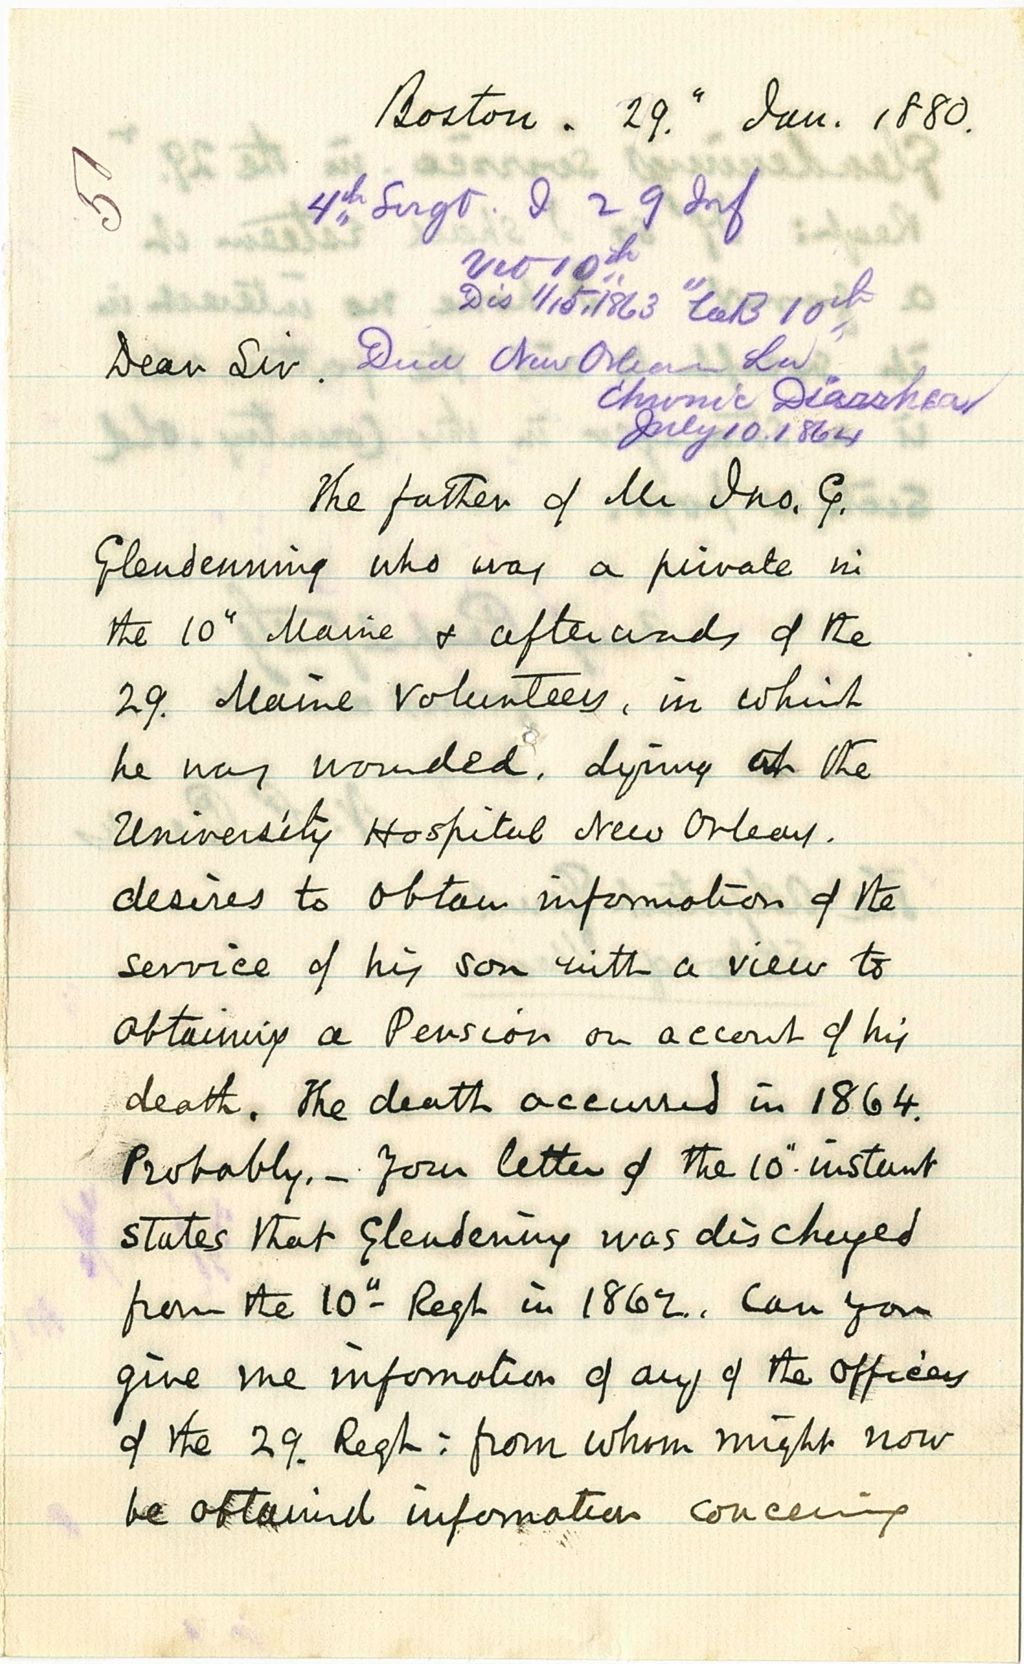 Boston. 29." Jan. 1880.
51
4th Sergt. I 29 Inf
Vet 10th
Dis 1/15/1863 "Co B 10th
Dear Sir.
Died New Orleans La
Chronic Diarrhea
July 10. 1864
The father of Mr Jno. G.
Glendenning who was a private in
the 10" Maine & afterwards of the
29. Maine Volunteers, in which
he was wounded, dying at the
University Hospital New Orleans.
desires to obtain information of the
service of his son with a view to
obtaining a Pension on account of his
death. The death occurred in 1864.
Probably. — Your letter of the 10" instant
states that Glendening was discharged
from the 10" Regt in 1862.. Can you
give me information of any of the officers
of the 29. Regt: from whom might now
be obtained information concering